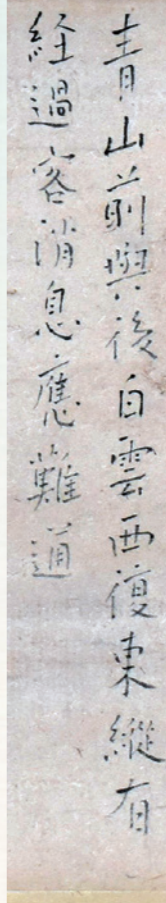 青山前與後白雲西復東縱有
経過客消息應難通